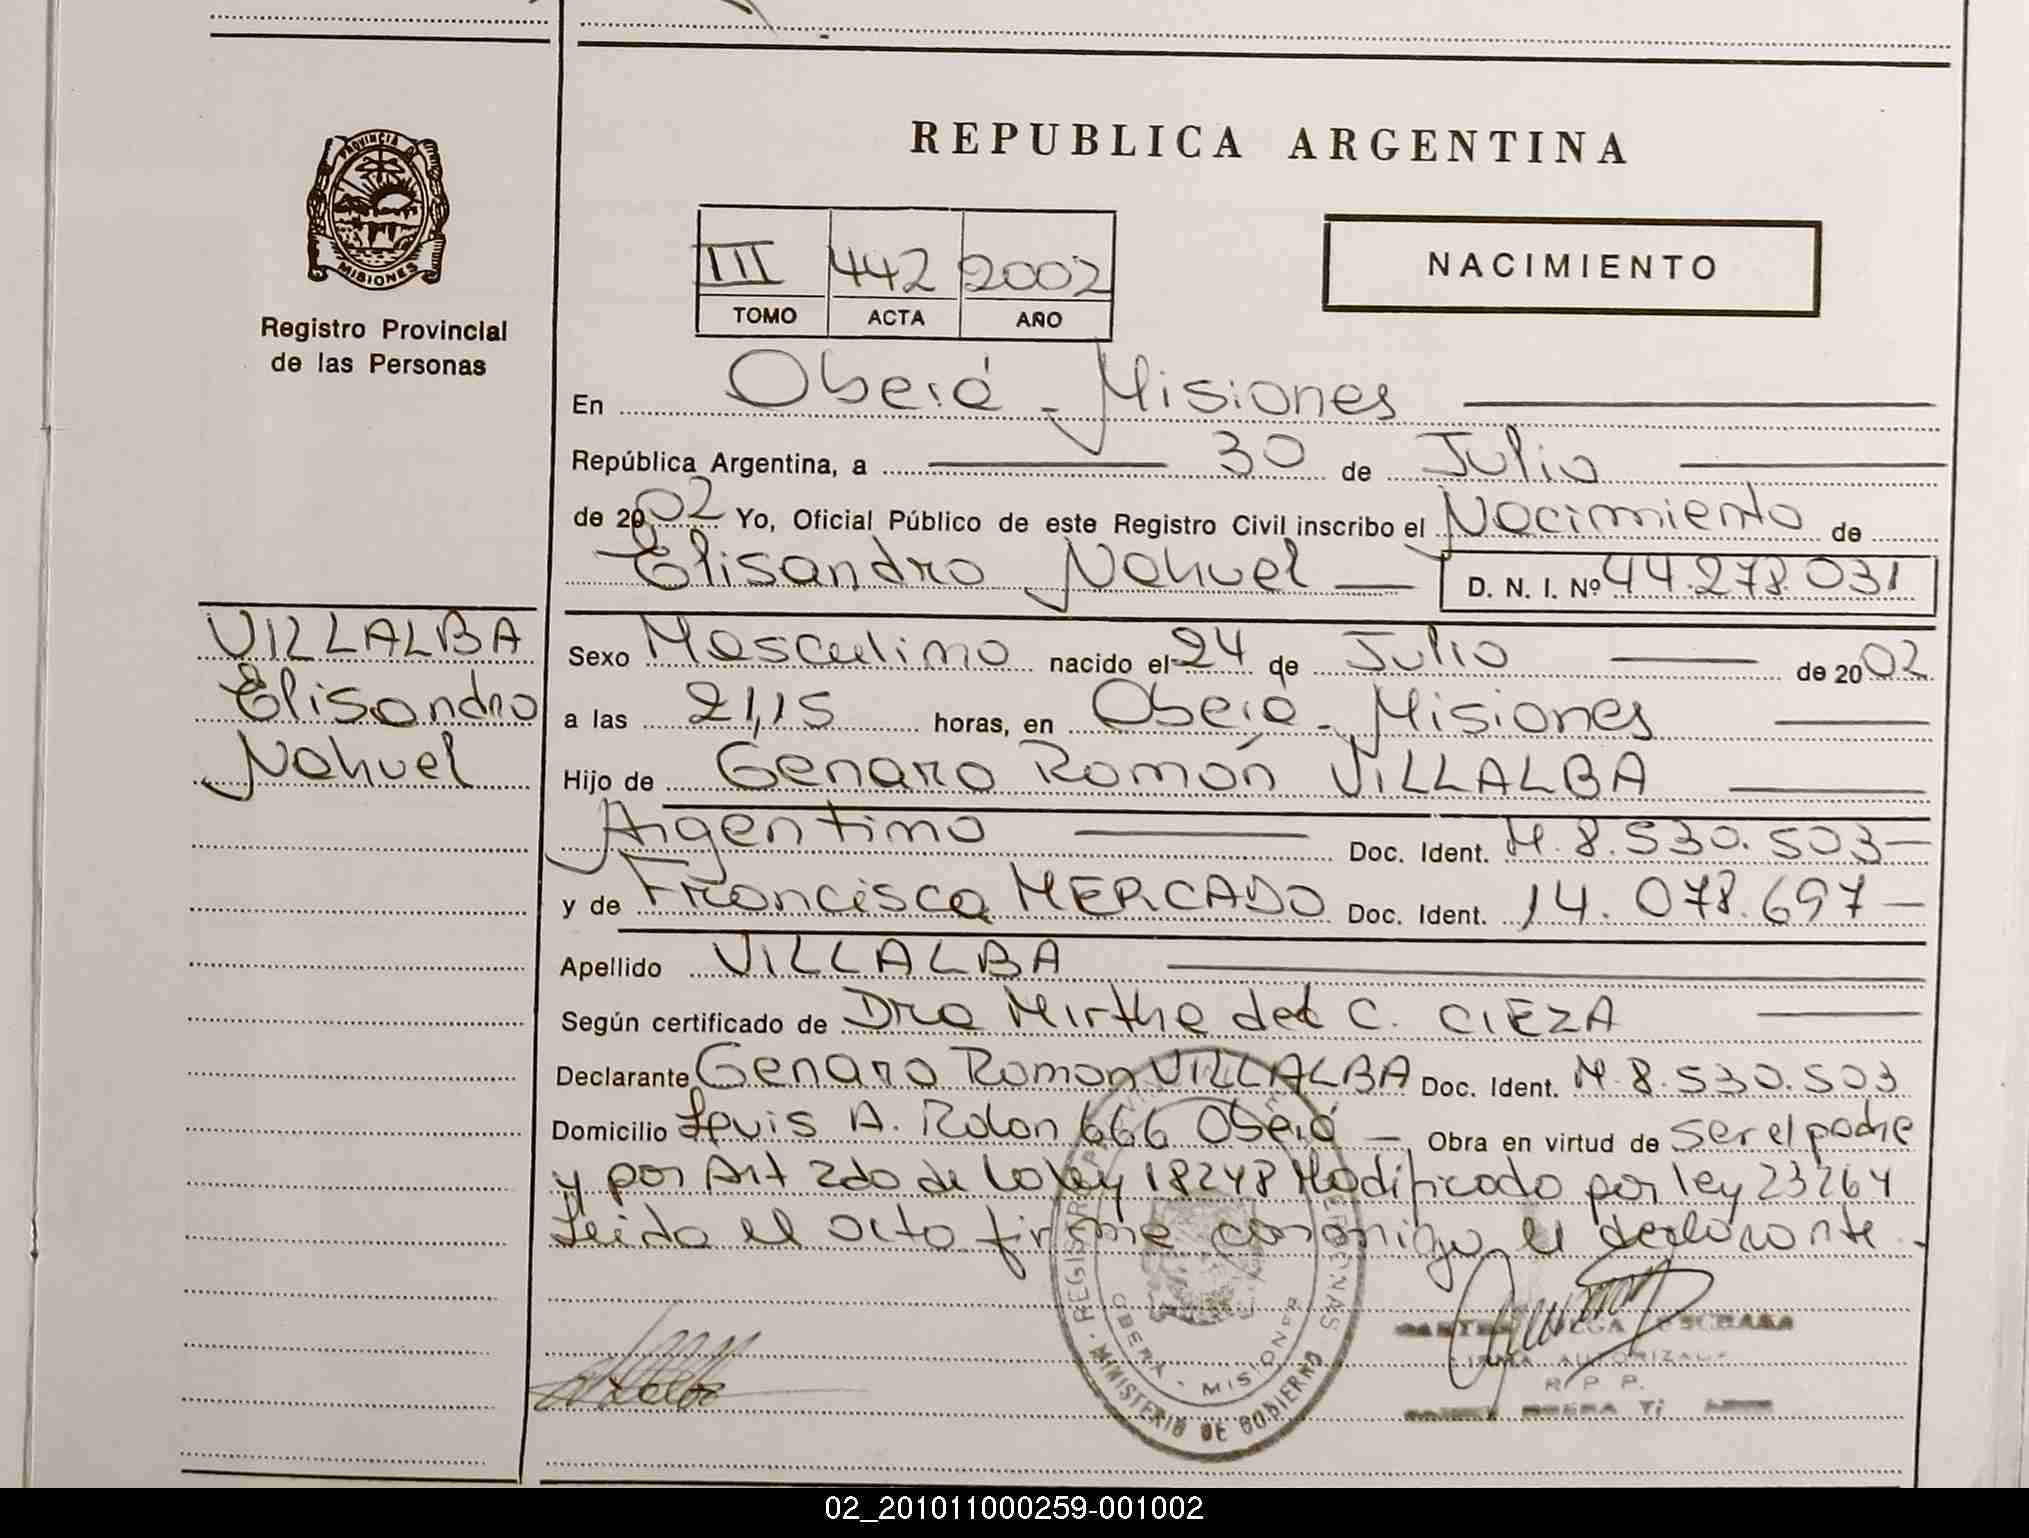 PROVINCIA D
MISIONES
Registro Provincial
de las Personas
REPUBLICA ARGENTINA
III 442 2002
TOMO ACTA AÑO
NACIMIENTO
En Oberá - Misiones
República Argentina, a 30 de Julio
de 2002 Yo, Oficial Público de este Registro Civil inscribo el Nacimiento de
Elisandro Nahuel D. N. I. Nº 44.278.031
VILLALBA
Elisandro
Nahuel
Sexo Masculino nacido el 24 de Julio de 2002
a las 21,15 horas, en Oberá - Misiones
Hijo de Genaro Ramón VILLALBA
Argentino Doc. Ident. M. 8.530.503
y de Francisca MERCADO Doc. Ident. 14.078.697
Apellido VILLALBA
Según certificado de Dra Mirtha del C. CIEZA
Declarante Genaro Ramon VILLALBA Doc. Ident. M. 8.530.503
Domicilio Luis A. Rolon 666 Oberá - Obra en virtud de ser el padre
y por Art 2do de la ley 18248 Modificado por ley 23264
Leida el acta firma conmigo el declarante.
OBERA - MISIONES
MINISTERIO DE GOBIERNO
FIRMA AUTORIZADA
R. P. P.
02_201011000259-001002